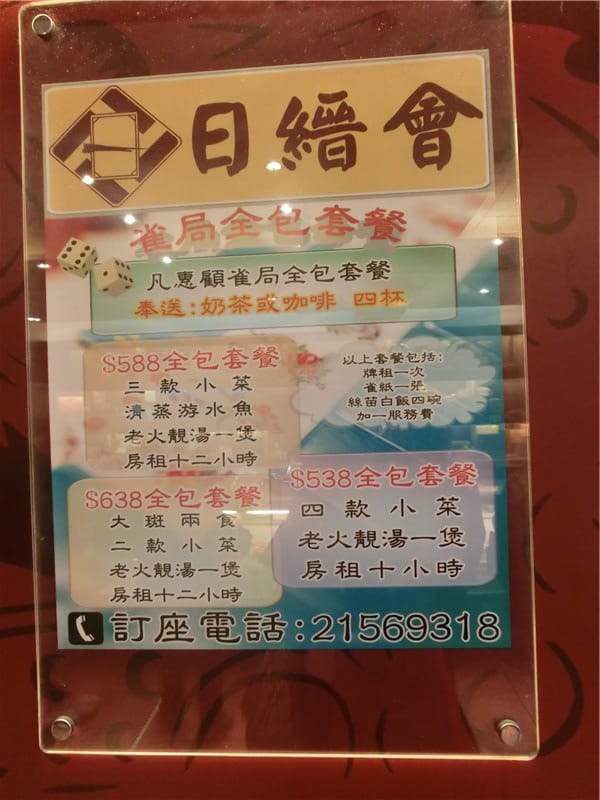 日縉會
雀局全包套餐
凡惠顧雀局全包套餐
奉送:奶茶或咖啡 四杯
$588全包套餐
三款小菜
清蒸游水魚
老火靚湯一煲
房租十二小時
以上套餐包括:
牌租一次
雀紙一張
絲苗白飯四碗
加一服務費
$638全包套餐
大斑兩食
二款小菜
老火靚湯一煲
房租十二小時
$538全包套餐
四款小菜
老火靚湯一煲
房租十小時
訂座電話:21569318